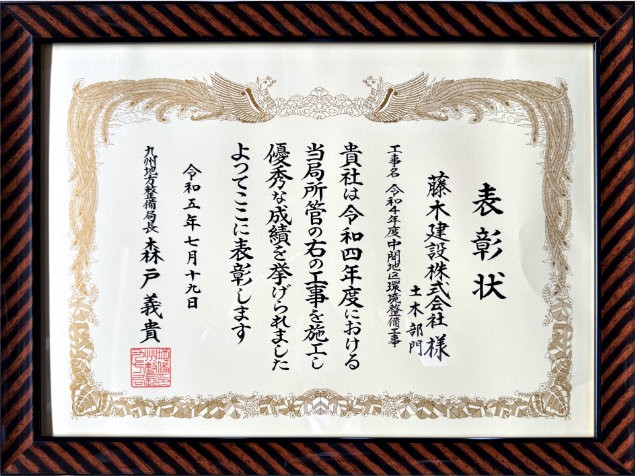 表彰状
藤木建設株式会社 様
土木部門
工事名 令和4年度中間地区環境整備工事
貴社は令和四年度における
当局所管の右の工事を施工し
優秀な成績を挙げられました
よってここに表彰します
令和五年七月十九日
九州地方整備局長 森戸義貴